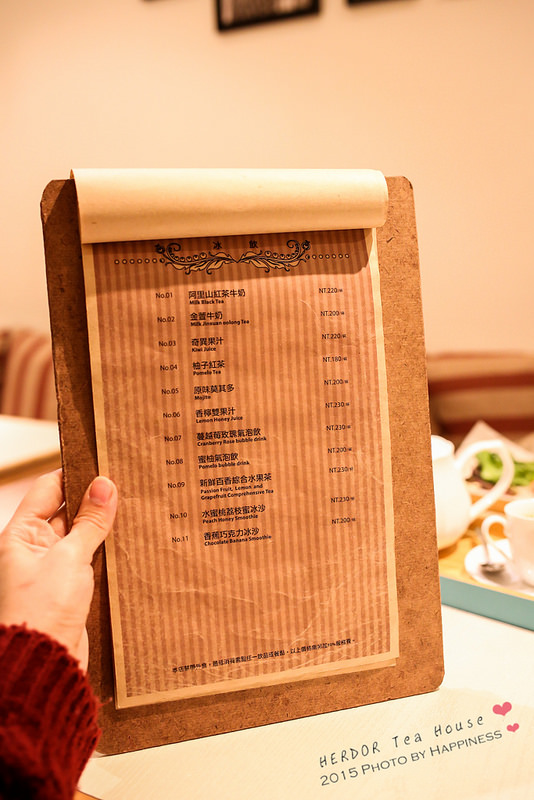 冰 飲
No.01 阿里山紅茶牛奶 NT.220/杯
Milk Black Tea
No.02 金萱牛奶 NT.200/杯
Milk Jinxuan oolong Tea
No.03 奇異果汁 NT.220/杯
Kiwi Juice
No.04 柚子紅茶 NT.180/杯
Pomelo Tea
No.05 原味莫其多 NT.200/杯
Mojito
No.06 香檸雙果汁 NT.230/杯
Lemon Honey Juice
No.07 蔓越莓玫瑰氣泡飲 NT.230/杯
Cranberry Rose bubble drink
No.08 蜜柚氣泡飲 NT.200/杯
Pomelo bubble drink
No.09 新鮮百香綜合水果茶 NT.230/杯
Passion Fruit, Lemon and
Grapefruit Comprehensive Tea
No.10 水蜜桃荔枝蜜冰沙 NT.230/杯
Peach Honey Smoothie
No.11 香蕉巧克力冰沙 NT.200/杯
Chocolate Banana Smoothie
HERDOR Tea House
2015 Photo by Happiness